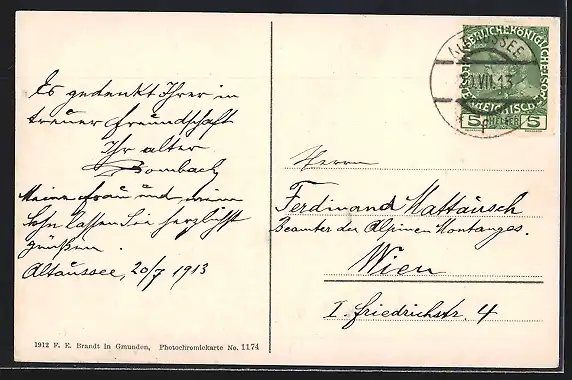 Es gedenkt Ihrer in
treuer Freundschaft
Ihr alter
Bombach
Meine Frau und mein
Sohn lassen Sie herzlichst
grüßen.
Altaussee, 20/7 1913
1912 F. E. Brandt in Gmunden, Photochromiekarte No. 1174
ALT AUSSEE
20.VII.13
KAISERLICHE KÖNIGLICHE
ÖSTERREICHISCHE
5 HELLER 5
Herrn
Ferdinand Mattausch
Beamter der Alpinen Montanges.
Wien
I. Friedrichstr 4